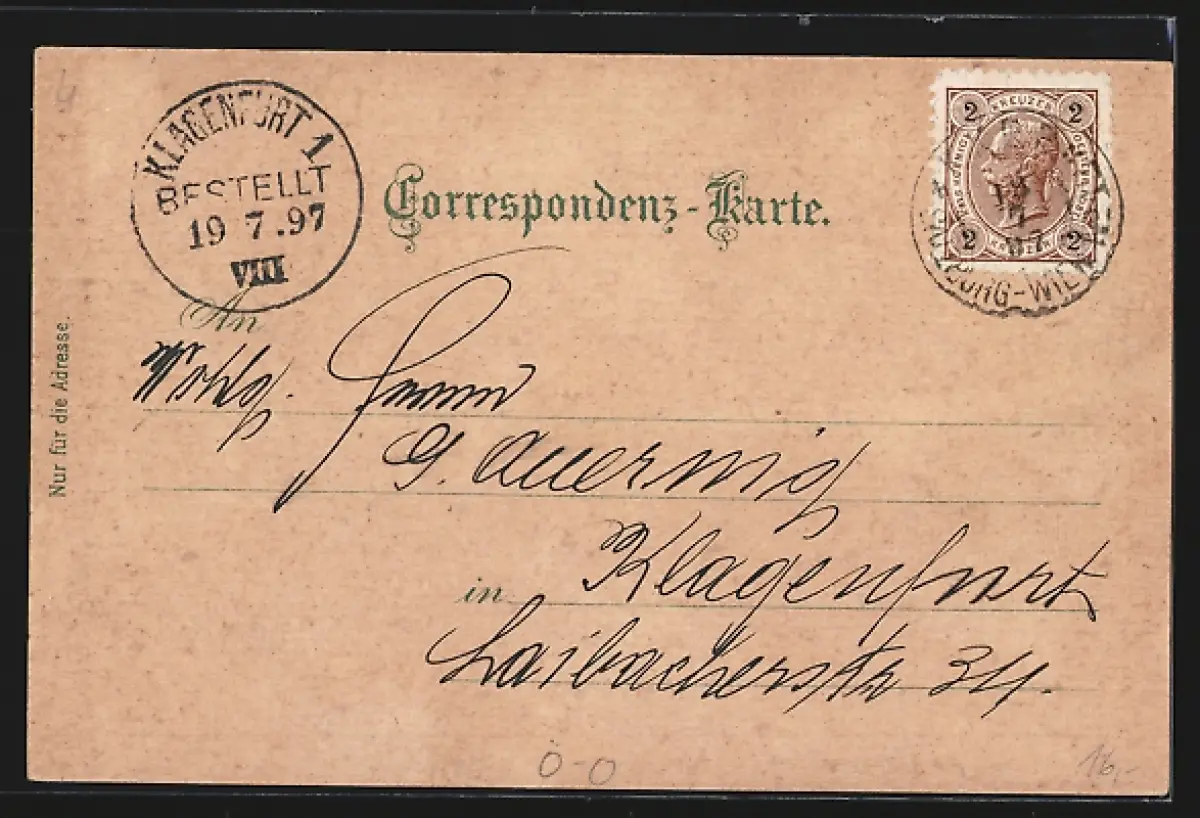 KLAGENFURT 1.
BESTELLT
19 7.97
VIII
2 KREUZER 2
2 2
BURG-WIEN
Correspondenz-Karte.
An
Wohlg. Herrn
G. Auernig
in Klagenfurt
Laibacherstr 34.
Nur für die Adresse.
0-0
16,-